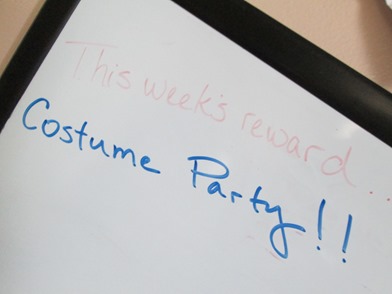 This week's reward...
Costume Party!!